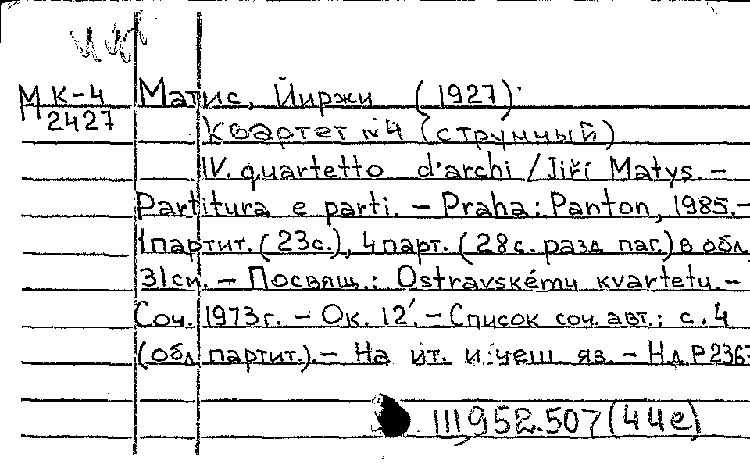 МК-4 Матис, Йиржи (1927)
2427 Квартет №4 (струнный)
IV. quartetto d'archi / Jiří Matys. –
Partitura e parti. – Praha: Panton, 1985. –
1 партит. (23с.), 4 парт. (28с. разд. паг.) в обл.
31см. – Посвящ.: Ostravskému kvartetu. –
Соч. 1973г. – Ок. 12'. – Список соч. авт.: с. 4
(обл. партит.). – На ит. и чеш. яз. – Н.д. Р 2367
III 952.507 (44е)